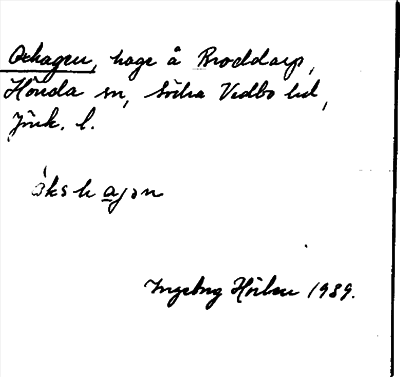 Oxhagen, hage å Broddarp,
Hönda sn, Södra Vedbo hd,
Jönk. l.
òkshagən
Ingeborg Hörberg 1939.